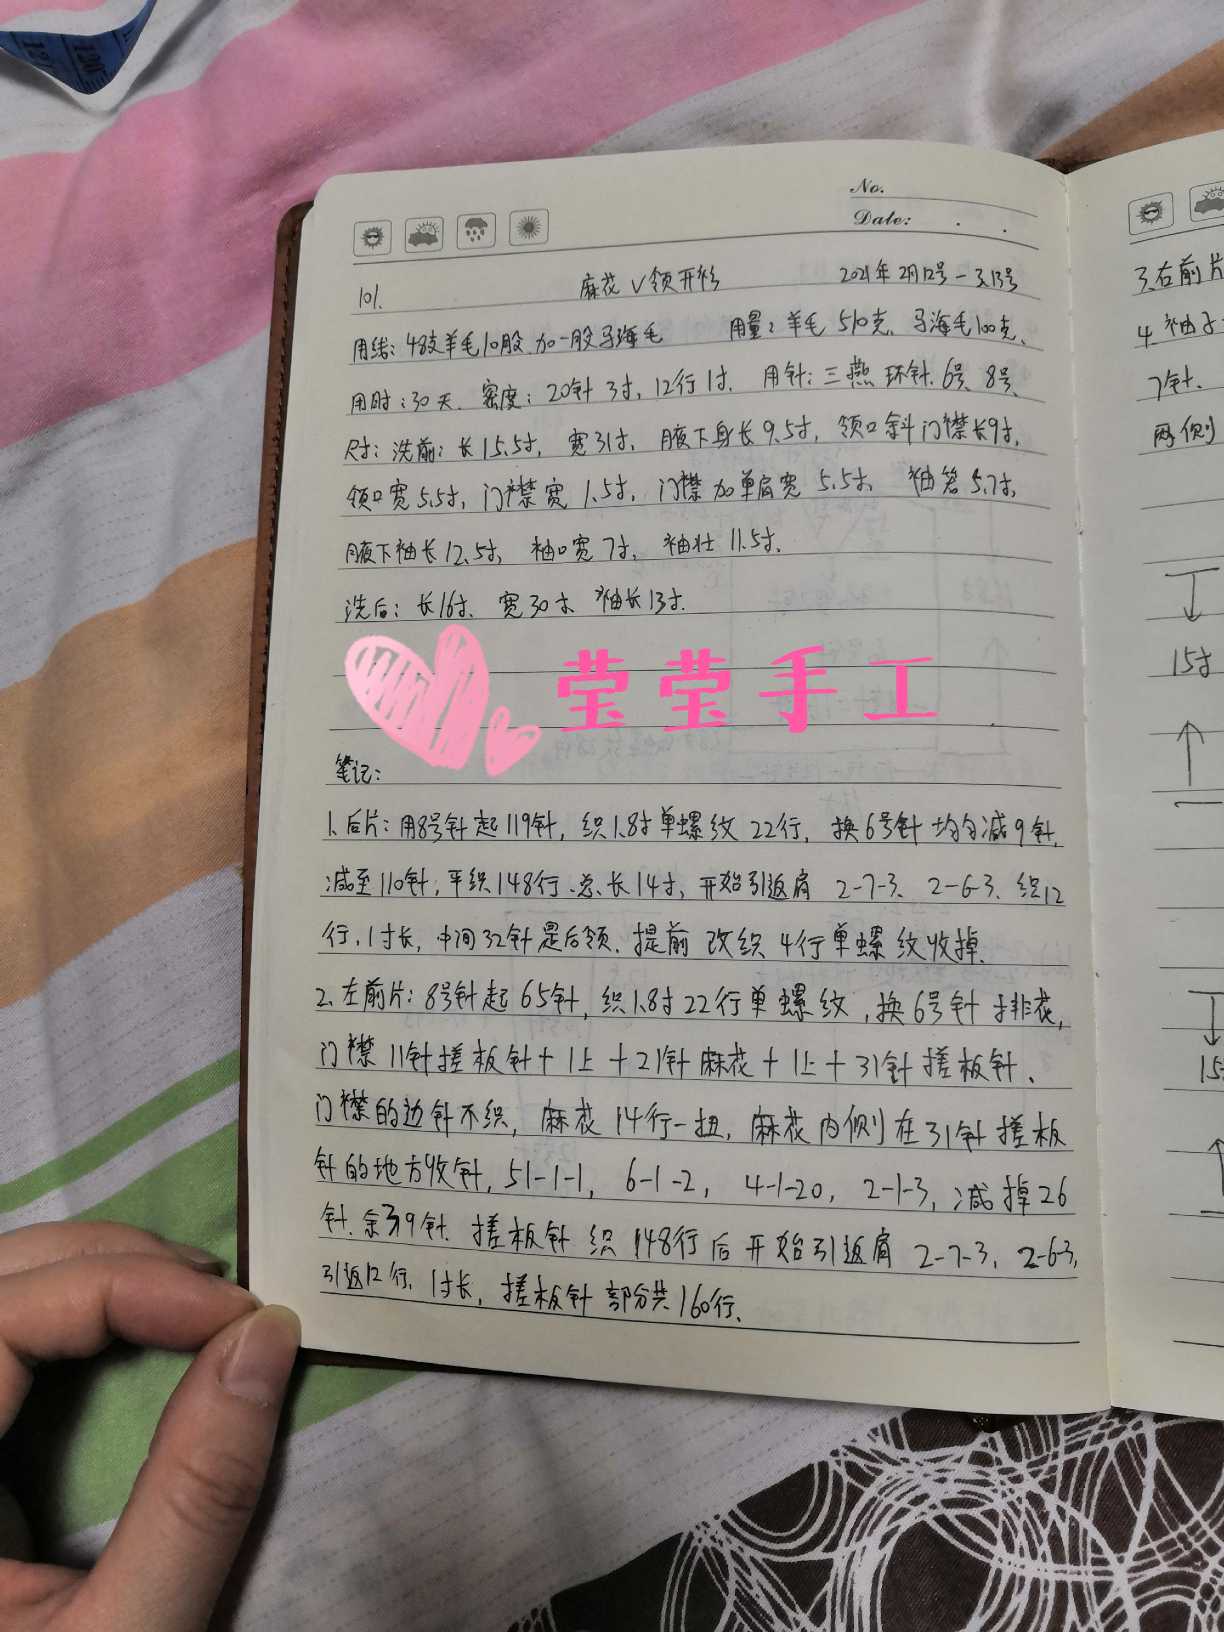 No.
Date: . .
101. 麻花V领开衫 2021年2月12号-3.13号
用线：48支羊毛10股加一股马海毛 用量：羊毛510克、马海毛100克、
用时：30天、密度：20针3寸，12行1寸、用针：三燕环针、6号、8号、
尺寸：洗前：长15.5寸，宽31寸，腋下身长9.5寸，领口斜门襟长9寸，
领口宽5.5寸，门襟宽1.5寸，门襟加单肩宽5.5寸、袖笼5.7寸，
腋下袖长12.5寸，袖口宽7寸，袖壮11.5寸．
洗后：长16寸、宽30寸、袖长13寸．
莹莹手工
笔记：
1、后片：用8号针起119针，织1.8寸单螺纹22行，换6号针均匀减9针，
减至110针，平织148行、总长14寸，开始引返肩 2-7-3、2-6-3、织12
行，1寸长，中间32针是后领．提前改织4行单螺纹收掉．
2、左前片：8号针起65针，织1.8寸22行单螺纹，换6号针排花，
门襟11针搓板针+1上+21针麻花+1上+31针搓板针、
门襟的边针不织，麻花14行一扭，麻花内侧在31针搓板
针的地方收针，51-1-1，6-1-2，4-1-20，2-1-3，减掉26
针、余39针．搓板针织148行后开始引返肩 2-7-3，2-6-3，
引返12行，1寸长，搓板针部分共160行、
3、右前片
4、袖子
7针、
两侧
15寸